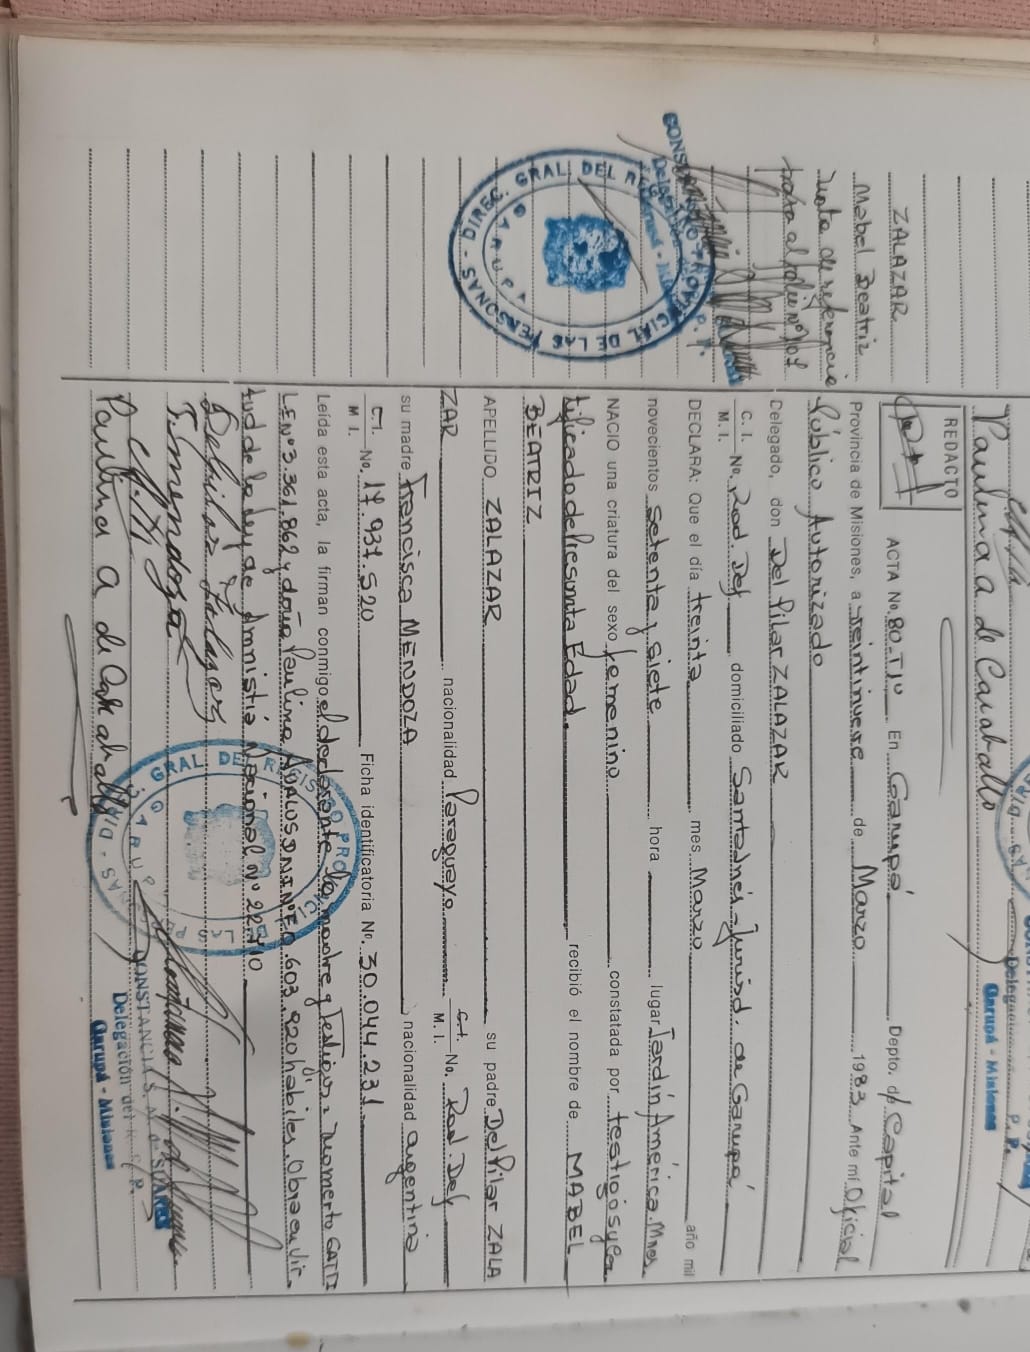 Paulina A de Caraballo
Delegación
Garupá - Misiones
REDACTO
ZALAZAR
Mabel Beatriz
Nota de referencia
pasa al folio Nº
CONSTANCIA
DIREC. GRAL. DEL REGISTRO PROVINCIAL DE LAS PERSONAS
GARUPA
ACTA No. 80-TJU En Garupá Depto. de Capital
Provincia de Misiones, a veintinueve de Marzo 1983 Ante mí Oficial
Público Autorizado
Delegado, don Del Pilar ZALAZAR
C. I. M. I. No. Rad. Def domiciliado Santa Inés - Jurisd. de Garupá
DECLARA: Que el día treinta mes Marzo año mil
novecientos setenta y siete hora lugar Jardín América. Mnes.
NACIO una criatura del sexo femenino constatada por testigos y Cer
tificado de Presunta Edad. recibió el nombre de MABEL
BEATRIZ
APELLIDO ZALAZAR su padre Del Pilar ZALA
ZAR nacionalidad Paraguayo C. I. M. I. No. Rad. Def
su madre Francisca MENDOZA nacionalidad argentina
C. I. M I. No. 17.937.520 Ficha identificatoria No. 30.044.231
Leída esta acta, la firman conmigo el declarante la madre y testigos = Numerto GATTI
LE Nº 3.361.862 y doña Paulina ADALUS DNI Nº F0.603.920 hábiles. Obra en vir-
tud de la ley de Amnistía Nacional Nº 22.710
Delpilar Zalazar
F. Mendoza
Paulina A de Caraballo
GRAL. DEL REGISTRO PROVINCIAL DE LAS PERSONAS
CONSTANCIA S. N. de SUAREZ
Delegación del R. P. P.
Garupá - Misiones